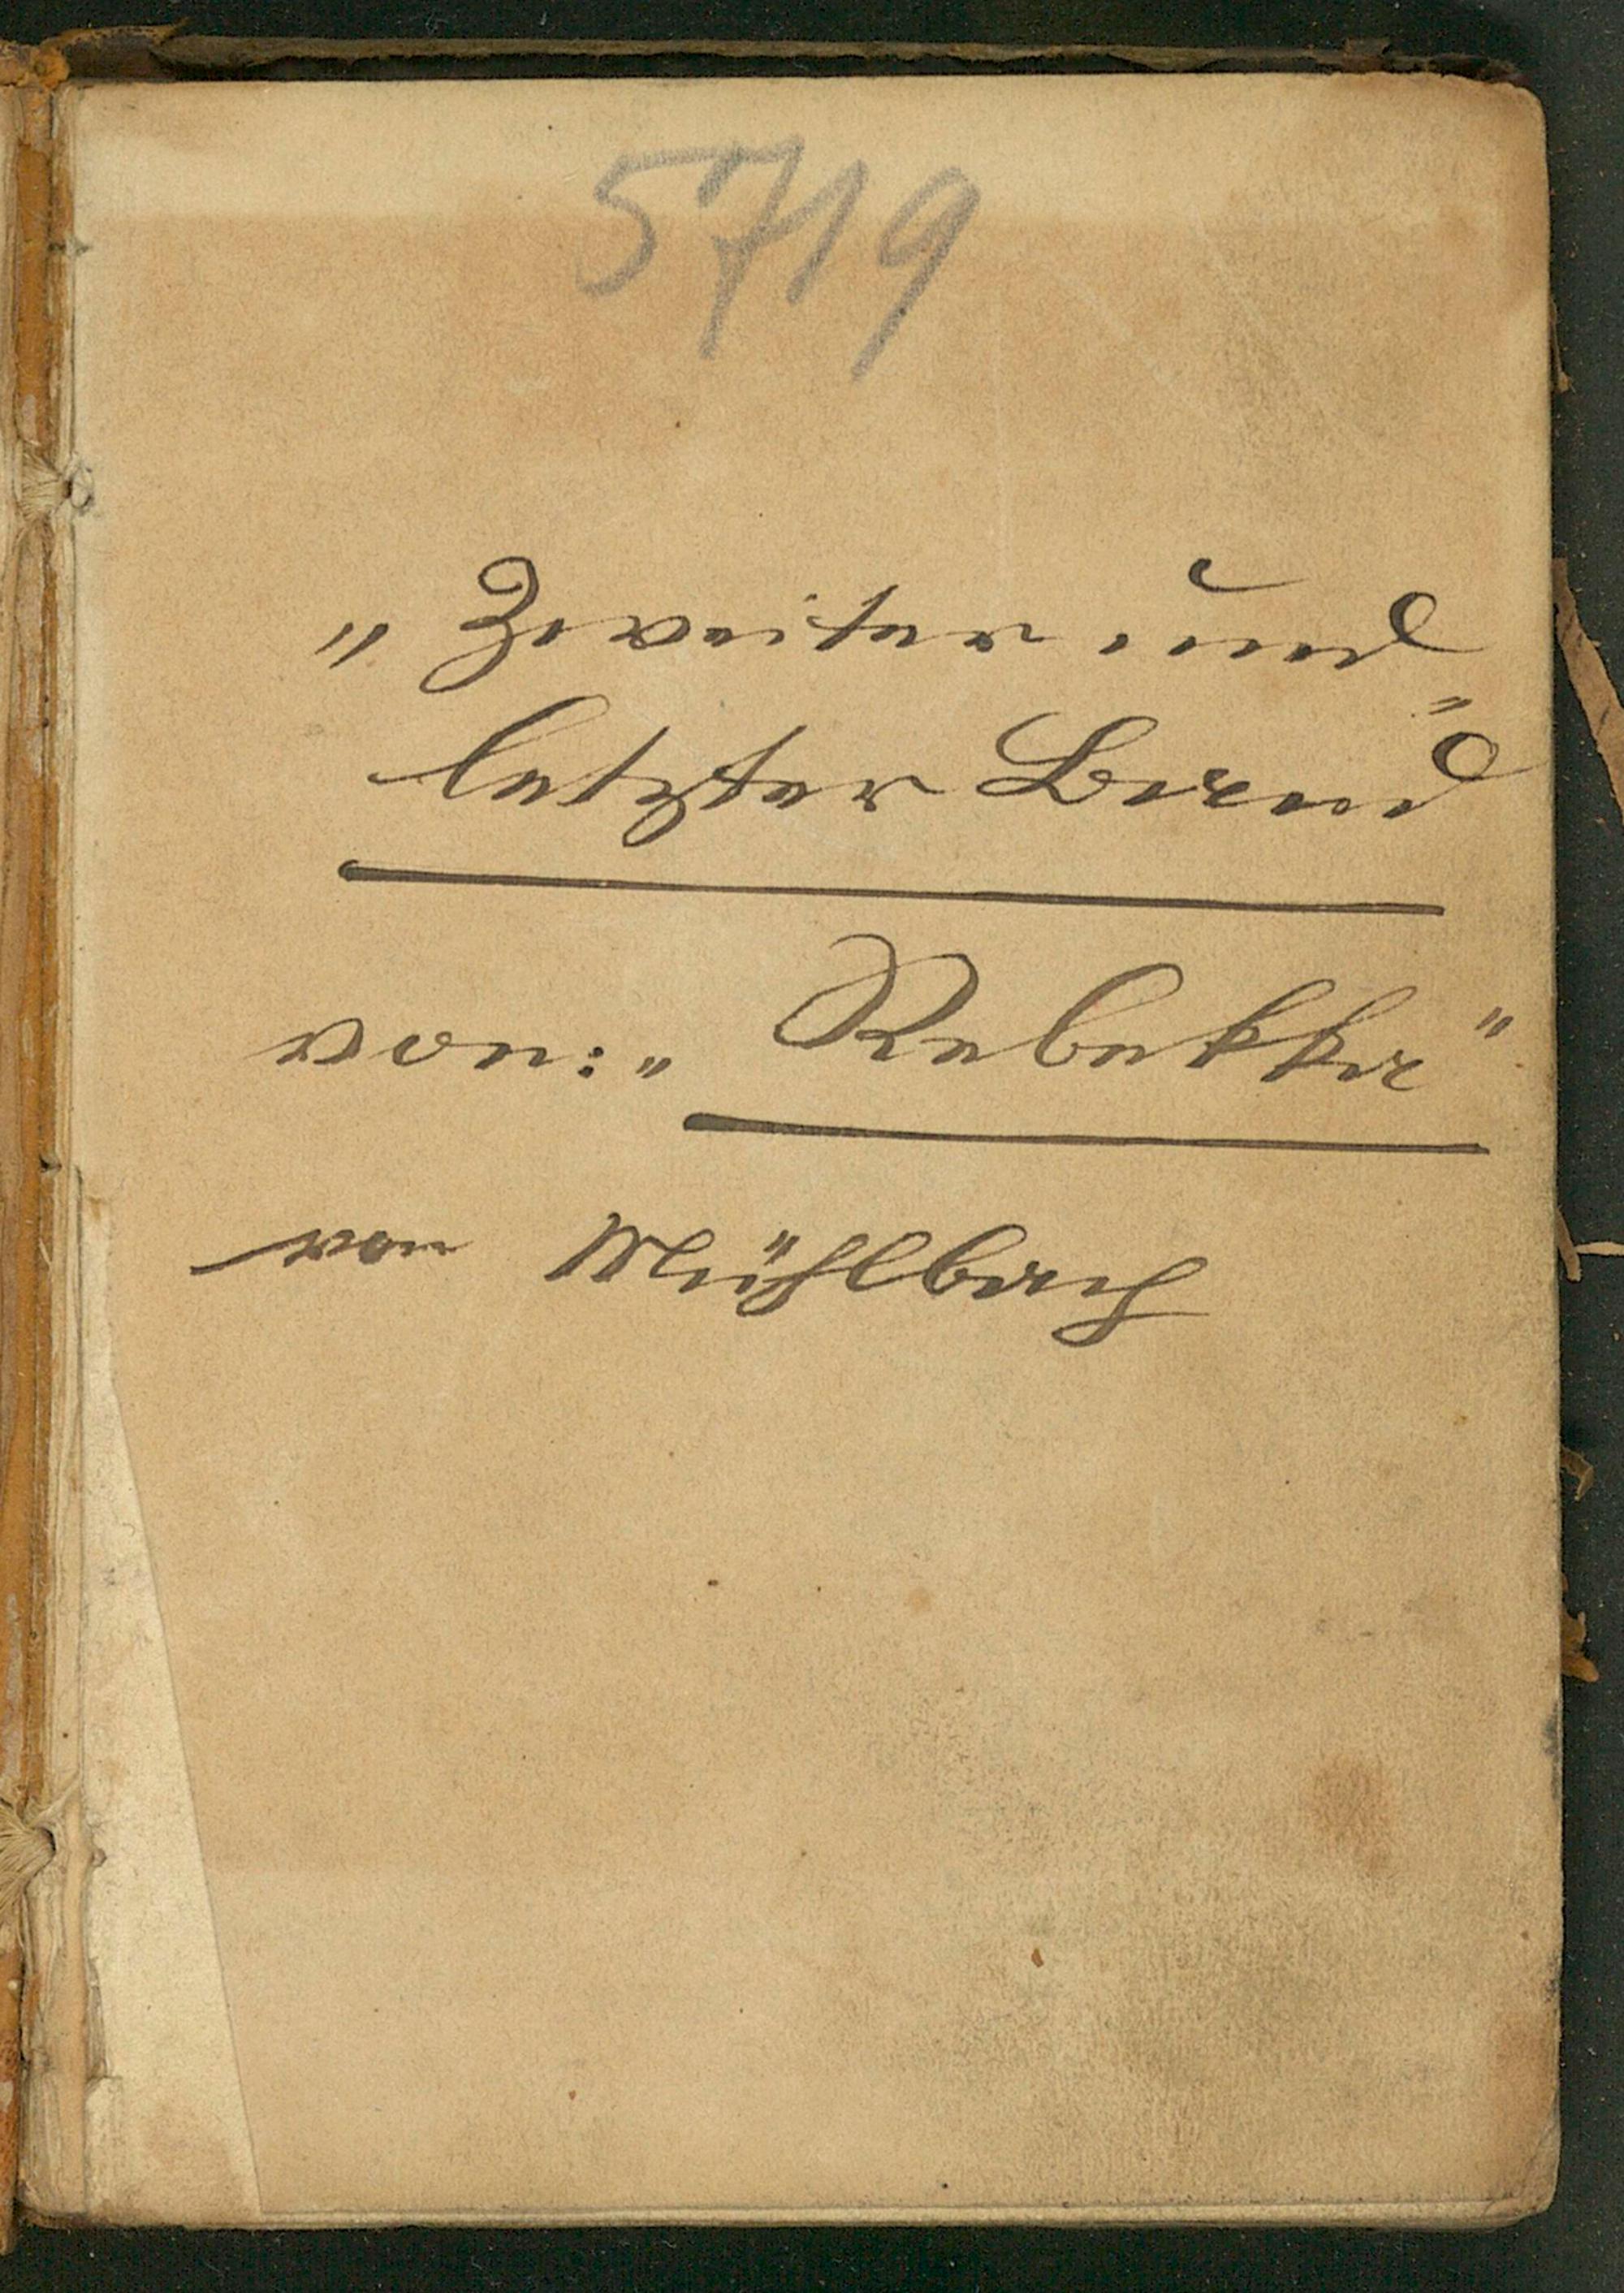 5719
„Zweiter und
letzter Band"
von: „Rebekka"
von Mühlbach